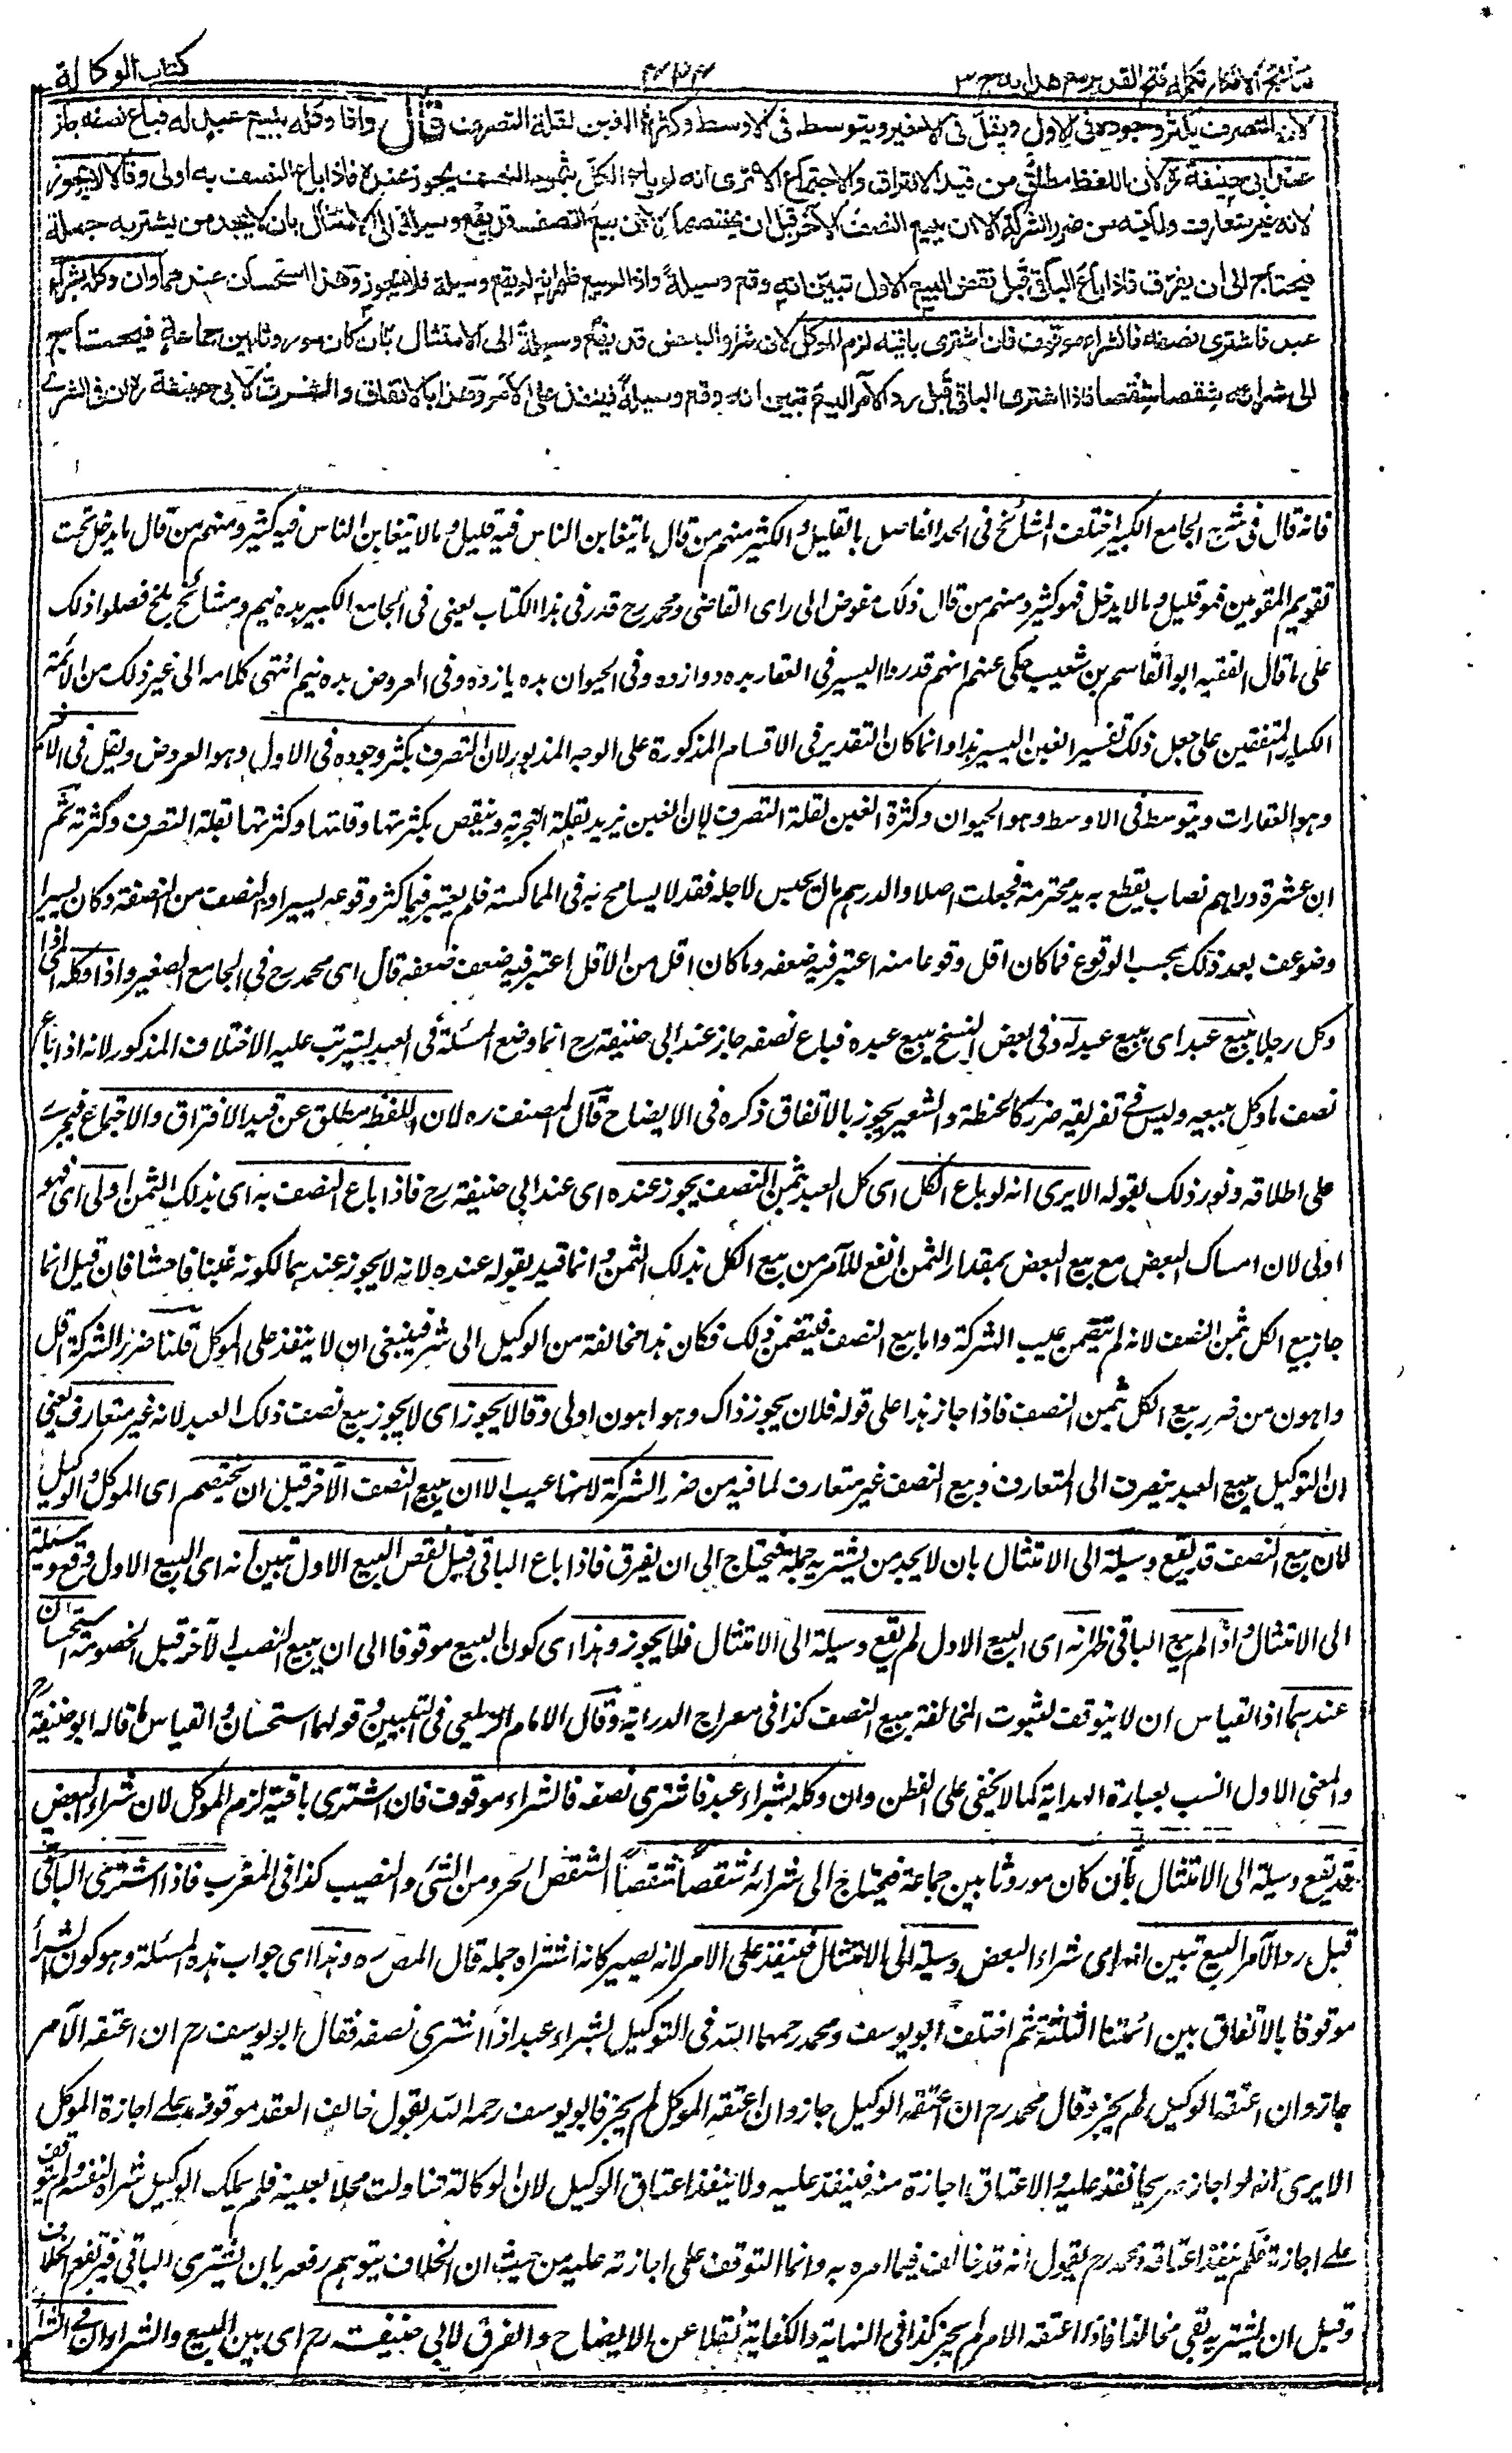 نتائج الافكار تكملة فتح القدير مع هدايه ج ٣
كتاب الوكالة
لان التصرف يكثر وجوده فى الاول ويقل فى الاخير ويتوسط فى الاوسط وكثرة الغبن لقلة التصرف قال واذا وكله ببيع عبد له فباع نصفه جاز
عند ابى حنيفة رح لان اللفظ مطلق من قيد الافتراق والاجتماع الا ترى انه لو باع الكل بثمن النصف يجوز عنده فاذا باع النصف به اولى وقالا لا يجوز
لانه غير متعارف ولما فيه من ضرر الشركة الا ان يبيع النصف الآخر قبل ان يختصما لان بيع النصف قد يقع وسيلة الى الامتثال بان لا يجد من يشتريه جملة
فيحتاج الى ان يفرق فاذا باع الباقى قبل نقض البيع الاول تبين انه وقع وسيلة واذا لم يبع ظهر انه لم يقع وسيلة فلا يجوز وهذا استحسان عندهما وان وكله بشراء
عبد فاشترى نصفه فالشراء موقوف فان اشترى باقيه لزم الموكل لان شراء البعض قد يقع وسيلة الى الامتثال بان كان موروثا بين جماعة فيحتاج
الى شرائه شقصا شقصا فاذا اشترى الباقى قبل رد الآمر البيع تبين انه وقع وسيلة فينفذ على الآمر وهذا بالاتفاق والفرق لابى حنيفة ره ان فى الشرء
فانه قال فى شرح الجامع الكبير اختلف المشائخ فى الحد الفاصل بالقليل والكثير منهم من قال ما يتغابن الناس فيه قليل وما لا يتغابن الناس فيه كثير ومنهم من قال ما يدخل تحت
تقويم المقومين فهو قليل وما لا يدخل فهو كثير ومنهم من قال ذلك مفوض الى راى القاضى ومحمد رح قدر فى هذا الكتاب يعنى فى الجامع الكبير بده نيم ومشائخ بلخ فصلوا ذلك
على ما قال الفقيه ابو القاسم بن شعيب حكى عنهم انهم قدروا اليسير فى العقار بده دوازده وفى الحيوان بده يازده وفى العروض بده نيم انتهى كلامه الى غير ذلك من الائمة
الكبار المتفقين على جعل ذلك تفسير الغبن اليسير هذا وانما كان التقدير فى الاقسام المذكورة على الوجه المذبور لان التصرف يكثر وجوده فى الاول وهو العروض ويقل فى الاخير
وهو العقارات ويتوسط فى الاوسط وهو الحيوان وكثرة الغبن لقلة التصرف لان الغبن يزيد بقلة التجربة وينقص بكثرتها وقلتها وكثرتها بقلة التصرف وكثرته ثم
ان عشرة دراهم نصاب يقطع به يد محترمة فجعلت اصلا والدرهم مال يحبس لاجله فقد لا يسامح به فى المماكسة فلم يعتبر فيما كثر وقوعه يسيرا والنصف من النصفة وكان يسيرا
وضوعف بعد ذلك بحسب الوقوع فما كان اقل وقوعا منه اعتبر فيه ضعفه وما كان اقل من الاقل اعتبر فيه ضعف ضعفه قال اى محمد رح فى الجامع الصغير واذا وكله اى اذا
وكل رجلا ببيع عبد اى ببيع عبد له وفى بعض النسخ ببيع عبده فباع نصفه جاز عند ابى حنيفة رح انما وضع المسئلة فى العبد ليترتب عليه الاختلاف المذكور لانه اذا باع
نصف ما وكل ببيعه وليس فى تفريقه ضرر كالحنطة والشعير يجوز بالاتفاق ذكره فى الايضاح قال المصنف ره لان اللفظ مطلق عن قيد الافتراق والاجتماع فيجرى
على اطلاقه ونور ذلك بقوله الا يرى انه لو باع الكل اى كل العبد بثمن النصف يجوز عنده اى عند ابى حنيفة رح فاذا باع النصف به اى بذلك الثمن اولى اى فهو
اولى لان امساك البعض مع بيع البعض بمقدار الثمن انفع للآمر من بيع الكل بذلك الثمن وانما قيد بقوله عنده لانه لا يجوز عندهما لكونه غبنا فاحشا فان قيل انما
جاز بيع الكل بثمن النصف لانه لم يتضمن عيب الشركة واما بيع النصف فيتضمن ذلك فكان هذا مخالفة من الوكيل الى شر فينبغى ان لا ينفذ على الموكل قلنا ضرر الشركة اقل
واهون من ضرر بيع الكل بثمن النصف فاذا جاز هذا على قوله فلان يجوز ذاك وهو اهون اولى وقالا لا يجوز اى لا يجوز بيع نصف ذلك العبد لانه غير متعارف يعنى
ان التوكيل ببيع العبد ينصرف الى المتعارف وبيع النصف غير متعارف لما فيه من ضرر الشركة لانها عيب الا ان يبيع النصف الآخر قبل ان يختصم اى الموكل والوكيل
لان بيع النصف قد يقع وسيلة الى الامتثال بان لا يجد من يشتريه جملة فيحتاج الى ان يفرق فاذا باع الباقى قبل نقض البيع الاول تبين انه اى البيع الاول وقع وسيلة
الى الامتثال واذا لم يبع الباقى ظهر انه اى البيع الاول لم يقع وسيلة الى الامتثال فلا يجوز وهذا اى كون البيع موقوفا الى ان يبيع النصف الآخر قبل الخصومة استحسان
عندهما اذ القياس ان لا يتوقف لثبوت المخالفة ببيع النصف كذا فى معراج الدراية وقال الامام الزيلعى فى التبيين وقولهما استحسان والقياس ما قاله ابو حنيفة رح
والمعنى الاول انسب بعبارة الهداية كما لا يخفى على الفطن وان وكله بشراء عبد فاشترى نصفه فالشراء موقوف فان اشترى باقيه لزم الموكل لان شراء البعض
قد يقع وسيلة الى الامتثال بأن كان موروثا بين جماعة فيحتاج الى شرائه شقصاً شقصاً الشقص الجزء من الشئ والنصيب كذا فى المغرب فاذا اشترى الباقى
قبل رد الآمر البيع تبين انه اى شراء البعض وسيلة الى الامتثال فينفذ على الامر لانه يصير كانه اشتراه جملة قال المص ره وهذا اى جواب هذه المسئلة وهو كون الشراء
موقوفا بالاتفاق بين ائمتنا الثلثة ثم اختلف ابو يوسف ومحمد رحمهما الله فى التوكيل بشراء عبد اذا اشترى نصفه فقال ابو يوسف رح ان اعتقه الآمر
جاز وان اعتقه الوكيل لم يجز وقال محمد رح ان اعتقه الوكيل جاز وان اعتقه الموكل لم يجز فابو يوسف رحمه الله يقول خالف العقد موقوف على اجازة الموكل
الا يرى انه لو اجازه صريحا نفذ عليه والاعتاق اجازة منه فينفذ عليه ولا ينفذ اعتاق الوكيل لان الوكالة تناولت محلا بعينه فلم يملك الوكيل شراه لنفسه ولم يتوقف
على اجازته فلم ينفذ اعتاقه ومحمد رح يقول انه قد خالف فيما امره به وانما التوقف على اجازته عليه من حيث ان الخلاف يتوهم رفعه بان يشترى الباقى فيرتفع الخلاف
وقبل ان يشتريه بقى مخالفا فاذا اعتقه الامر لم يجز كذا فى النهاية والكفاية نقلا عن الايضاح والفرق لابى حنيفة رح اى بين البيع والشراء ان فى الشراء